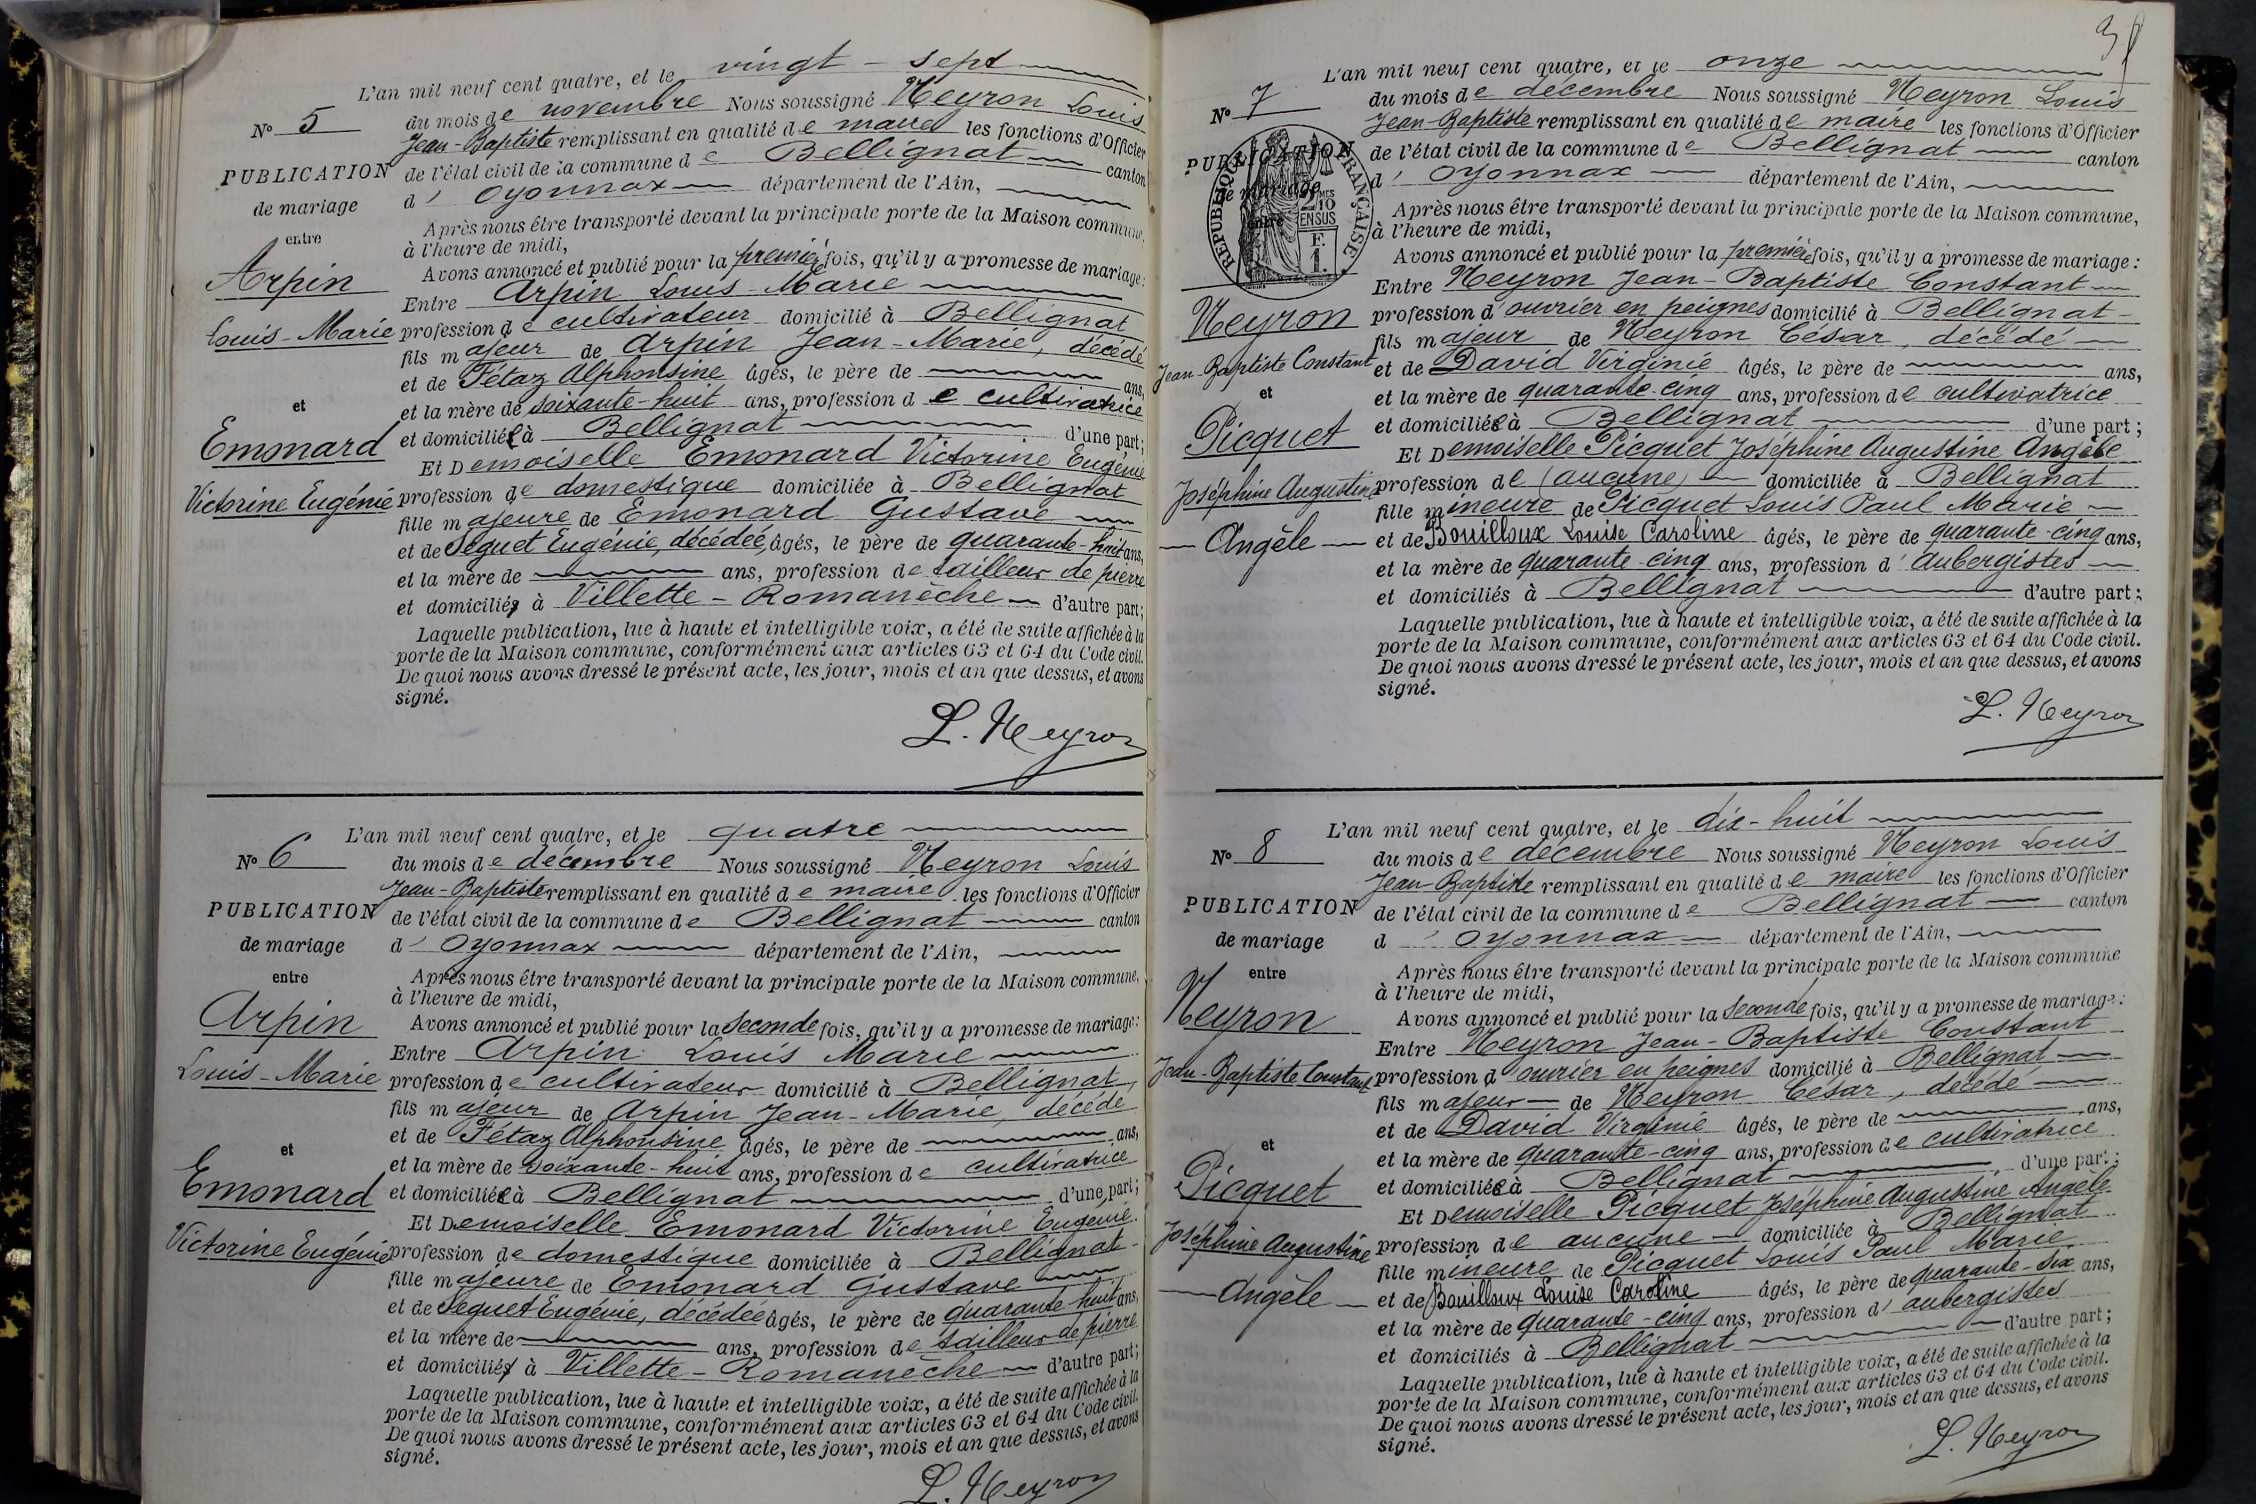 L'an mil neuf cent quatre, et le vingt-sept
N° 5
du mois de novembre Nous soussigné Neyron Louis
Jean-Baptiste remplissant en qualité de maire les fonctions d'Officier
PUBLICATION
de l'état civil de la commune de Bellignat canton
de mariage
d'Oyonnax département de l'Ain,
entre
Après nous être transporté devant la principale porte de la Maison commune,
à l'heure de midi,
Arpin
Avons annoncé et publié pour la première fois, qu'il y a promesse de mariage:
Entre Arpin Louis Marie
Louis-Marie
profession de cultivateur domicilié à Bellignat
fils majeur de Arpin Jean-Marie, décédé
et de Fétaz Alphonsine âgés, le père de ans,
et
et la mère de soixante-huit ans, profession de cultivatrice
Emonard
et domiciliée à Bellignat d'une part;
Et Demoiselle Emonard Victorine Eugénie
Victorine Eugénie
profession de domestique domiciliée à Bellignat
fille majeure de Emonard Gustave
et de Seguet Eugénie, décédée, âgés, le père de quarante-huit ans,
et la mère de ans, profession de tailleur de pierre
et domicilié à Villette-Romanèche d'autre part;
Laquelle publication, lue à haute et intelligible voix, a été de suite affichée à la
porte de la Maison commune, conformément aux articles 63 et 64 du Code civil.
De quoi nous avons dressé le présent acte, les jour, mois et an que dessus, et avons
signé.
L. Neyron
L'an mil neuf cent quatre, et le quatre
N° 6
du mois de décembre Nous soussigné Neyron Louis
Jean-Baptiste remplissant en qualité de maire les fonctions d'Officier
PUBLICATION
de l'état civil de la commune de Bellignat canton
de mariage
d'Oyonnax département de l'Ain,
entre
Après nous être transporté devant la principale porte de la Maison commune,
à l'heure de midi,
Arpin
Avons annoncé et publié pour la seconde fois, qu'il y a promesse de mariage:
Entre Arpin Louis Marie
Louis-Marie
profession de cultivateur domicilié à Bellignat,
fils majeur de Arpin Jean-Marie, décédé
et de Fétaz Alphonsine âgés, le père de ans,
et
et la mère de soixante-huit ans, profession de cultivatrice
Emonard
et domiciliée à Bellignat d'une part;
Et Demoiselle Emonard Victorine Eugénie
Victorine Eugénie
profession de domestique domiciliée à Bellignat
fille majeure de Emonard Gustave
et de Seguet Eugénie, décédée âgés, le père de quarante-huit ans,
et la mère de ans, profession de tailleur de pierre
et domicilié à Villette-Romanèche d'autre part;
Laquelle publication, lue à haute et intelligible voix, a été de suite affichée à la
porte de la Maison commune, conformément aux articles 63 et 64 du Code civil.
De quoi nous avons dressé le présent acte, les jour, mois et an que dessus, et avons
signé.
L. Neyron
L'an mil neuf cent quatre, et le onze
N° 7
du mois de décembre Nous soussigné Neyron Louis
Jean-Baptiste remplissant en qualité de maire les fonctions d'Officier
PUBLICATION
de l'état civil de la commune de Bellignat canton
de mariage
d'Oyonnax département de l'Ain,
entre
RÉPUBLIQUE FRANÇAISE
2/10 EN SUS
F. 1.
Après nous être transporté devant la principale porte de la Maison commune,
à l'heure de midi,
Avons annoncé et publié pour la première fois, qu'il y a promesse de mariage:
Entre Neyron Jean-Baptiste Constant
Neyron
profession d'ouvrier en peignes domicilié à Bellignat
fils majeur de Neyron César, décédé
Jean-Baptiste Constant
et de David Virginie âgés, le père de ans,
et
et la mère de quarante-cinq ans, profession de cultivatrice
et domiciliée à Bellignat d'une part;
Picquet
Et Demoiselle Picquet Joséphine Augustine Angèle
Joséphine Augustine
profession de (aucune) domiciliée à Bellignat
fille mineure de Picquet Louis Paul Marie
Angèle
et de Bouilloux Louise Caroline âgés, le père de quarante-cinq ans,
et la mère de quarante-cinq ans, profession d'aubergistes
et domiciliés à Bellignat d'autre part;
Laquelle publication, lue à haute et intelligible voix, a été de suite affichée à la
porte de la Maison commune, conformément aux articles 63 et 64 du Code civil.
De quoi nous avons dressé le présent acte, les jour, mois et an que dessus, et avons
signé.
L. Neyron
L'an mil neuf cent quatre, et le dix-huit
N° 8
du mois de décembre Nous soussigné Neyron Louis
Jean-Baptiste remplissant en qualité de maire les fonctions d'Officier
PUBLICATION
de l'état civil de la commune de Bellignat canton
de mariage
d'Oyonnax département de l'Ain,
entre
Après nous être transporté devant la principale porte de la Maison commune
à l'heure de midi,
Neyron
Avons annoncé et publié pour la seconde fois, qu'il y a promesse de mariage:
Entre Neyron Jean-Baptiste Constant
Jean-Baptiste Constant
profession d'ouvrier en peignes domicilié à Bellignat
fils majeur de Neyron César, décédé
et de David Virginie âgés, le père de ans,
et
et la mère de quarante-cinq ans, profession de cultivatrice
et domiciliée à Bellignat d'une part;
Picquet
Et Demoiselle Picquet Joséphine Augustine Angèle
Joséphine Augustine
profession de aucune domiciliée à Bellignat
fille mineure de Picquet Louis Paul Marie
Angèle
et de Bouilloux Louise Caroline âgés, le père de quarante-six ans,
et la mère de quarante-cinq ans, profession d'aubergistes
et domiciliés à Bellignat d'autre part;
Laquelle publication, lue à haute et intelligible voix, a été de suite affichée à la
porte de la Maison commune, conformément aux articles 63 et 64 du Code civil.
De quoi nous avons dressé le présent acte, les jour, mois et an que dessus, et avons
signé.
L. Neyron